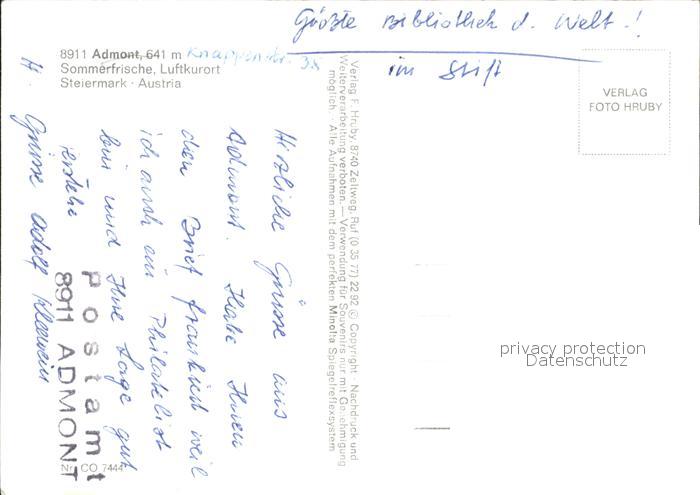 Größte Bibliothek d. Welt!
im Stift
8911 Admont, 641 m
Sommerfrische, Luftkurort
Steiermark · Austria
VERLAG
FOTO HRUBY
Verlag F. Hruby, 8740 Zeltweg, Ruf (0 35 77) 22 92 © Copyright · Nachdruck und
Weiterverarbeitung verboten. — Verwendung für Souvenirs nur mit Genehmigung
möglich. · Alle Aufnahmen mit dem perfekten Minolta Spiegelreflexsystem
Herzliche Grüsse aus
Admont. Habe Ihnen
den Brief frankiert weil
ich auch ein Philatelist
bin und Ihre Sorge gut
verstehe
H. Grüsse Adolf
Postamt
8911 ADMONT
Nr. CO 7444
privacy protection
Datenschutz